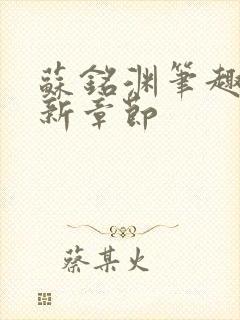 蘇銘渊筆趣
新章節
蔡某火